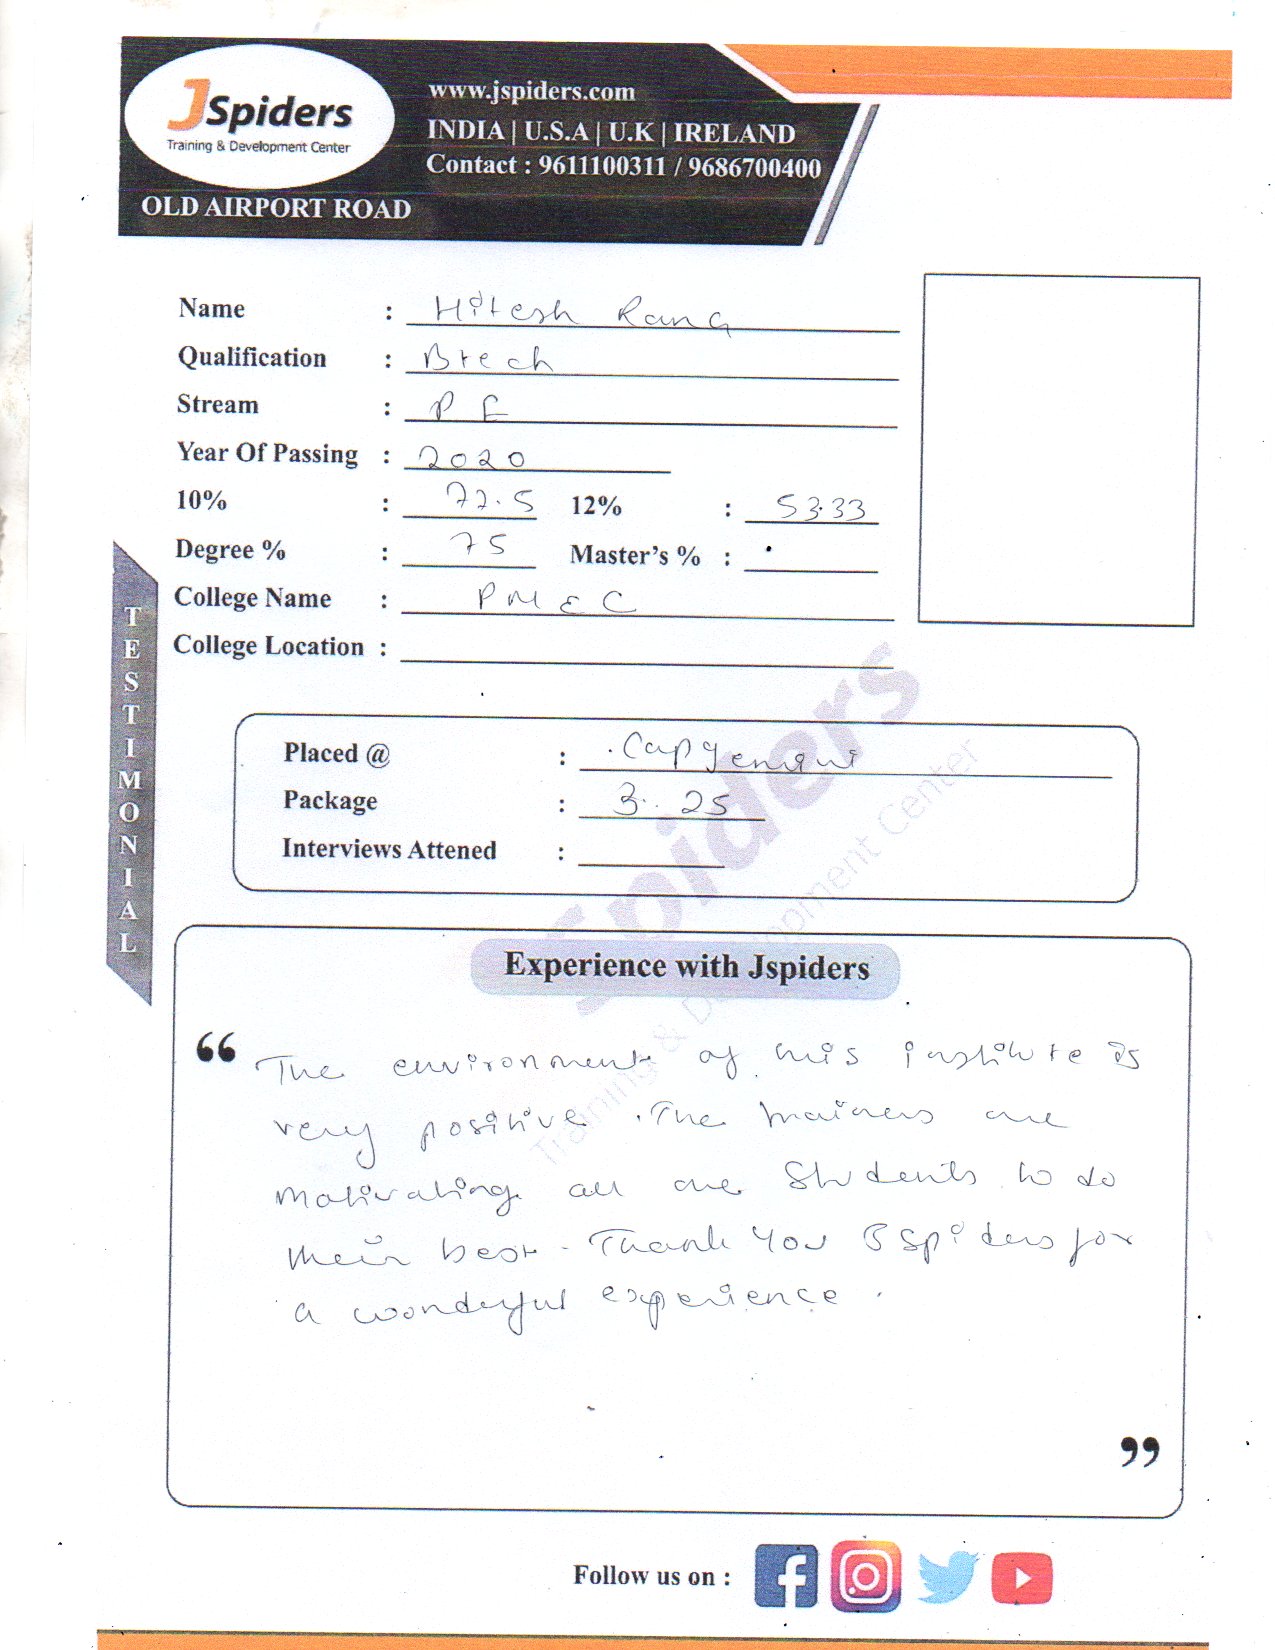 JSpiders
Training & Development Center
OLD AIRPORT ROAD
www.jspiders.com
INDIA | U.S.A | U.K | IRELAND
Contact : 9611100311 / 9686700400
Name : Hitesh Rana
Qualification : Btech
Stream : P E
Year Of Passing : 2020
10% : 72.5 12% : 53.33
Degree % : 75 Master's % :
College Name : PMEC
College Location :
TESTIMONIAL
Placed @ : Capgemini
Package : 3.25
Interviews Attened :
Spiders
Training & Development Center
Experience with Jspiders
“ The environment of this institute is
very positive. The trainers are
motivating all the students to do
their best. Thank You JSpiders for
a wonderful experience.
”
Follow us on :